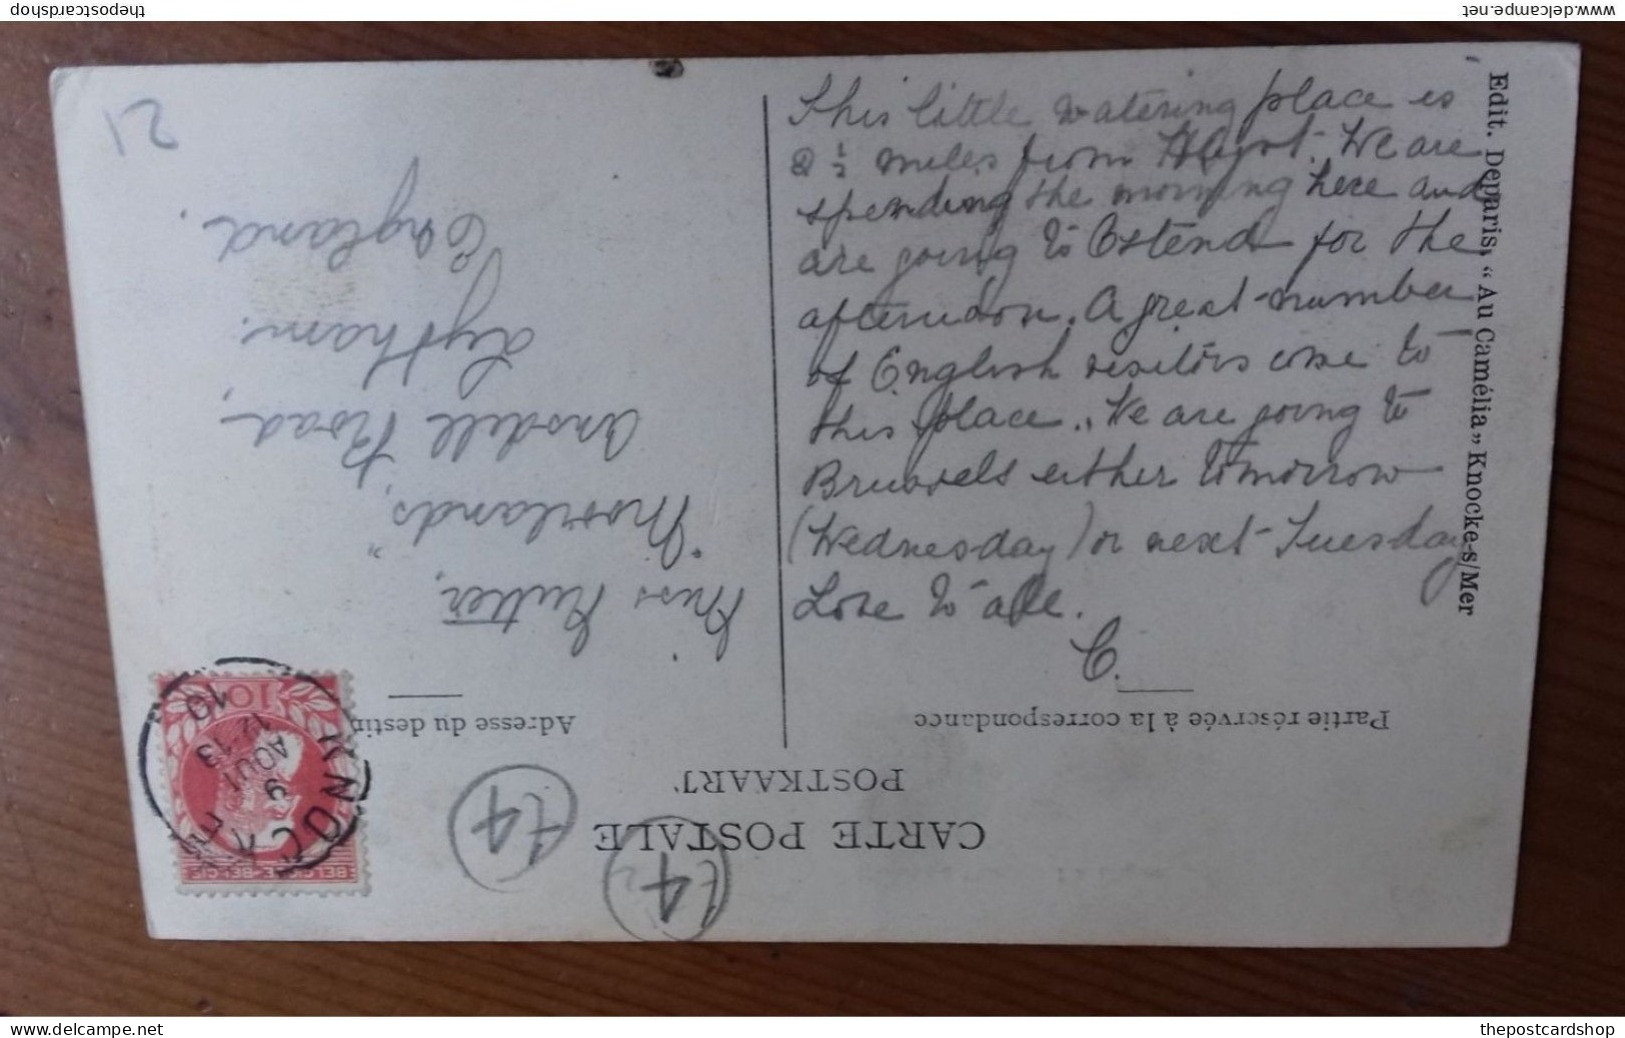 This little watering place is
2 1/2 miles from Heyst. We are
spending the morning here and
are going to Ostend for the
afternoon. A great number
of English visitors come to
this place. We are going to
Brussels either tomorrow
(Wednesday) or next Tuesday
Love to all.
C.
Edit. Deparis, “Au Camélia” Knocke-s/Mer
CARTE POSTALE
POSTKAART
Partie réservée à la correspondance
Adresse du destin
Miss Rutter,
"Moorlands,"
Ansdell Road,
Lytham.
England.
21
t4
t4
10
BELGIQUE-BELGIË
KNOCKE
9
AOUT
12-13
10
www.delcampe.net
thepostcardshop
www.delcampe.net
thepostcardshop